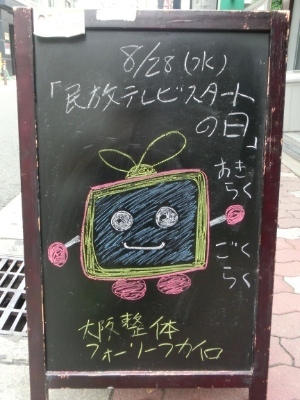 8/28(水)
「民放テレビスタート
の日」
おき
らく
ごく
らく
大阪整体
フォーリーフカイロ